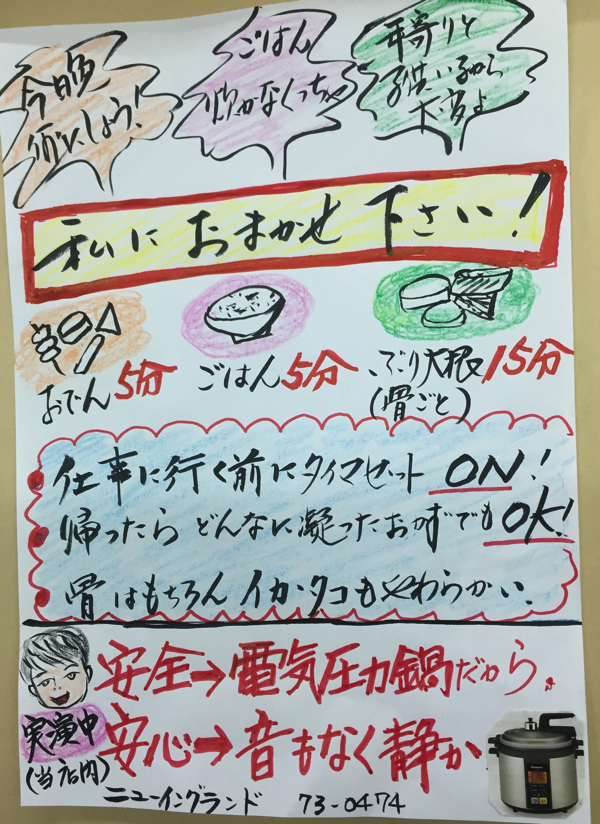 今晩
何にしよう!
ごはん
炊かなくっちゃ
年寄りと
子供いるから
大変よ
私におまかせ下さい!
おでん5分
ごはん5分
ぶり大根15分
(骨ごと)
仕事に行く前にタイマーセット ON!
帰ったら どんなに凝ったおかずでも OK!
骨はもちろん イカ・タコもやわらかい.
安全→電気圧力鍋だから.
実演中
(当店内)
安心→音もなく静か
ニューイングランド 73-0474